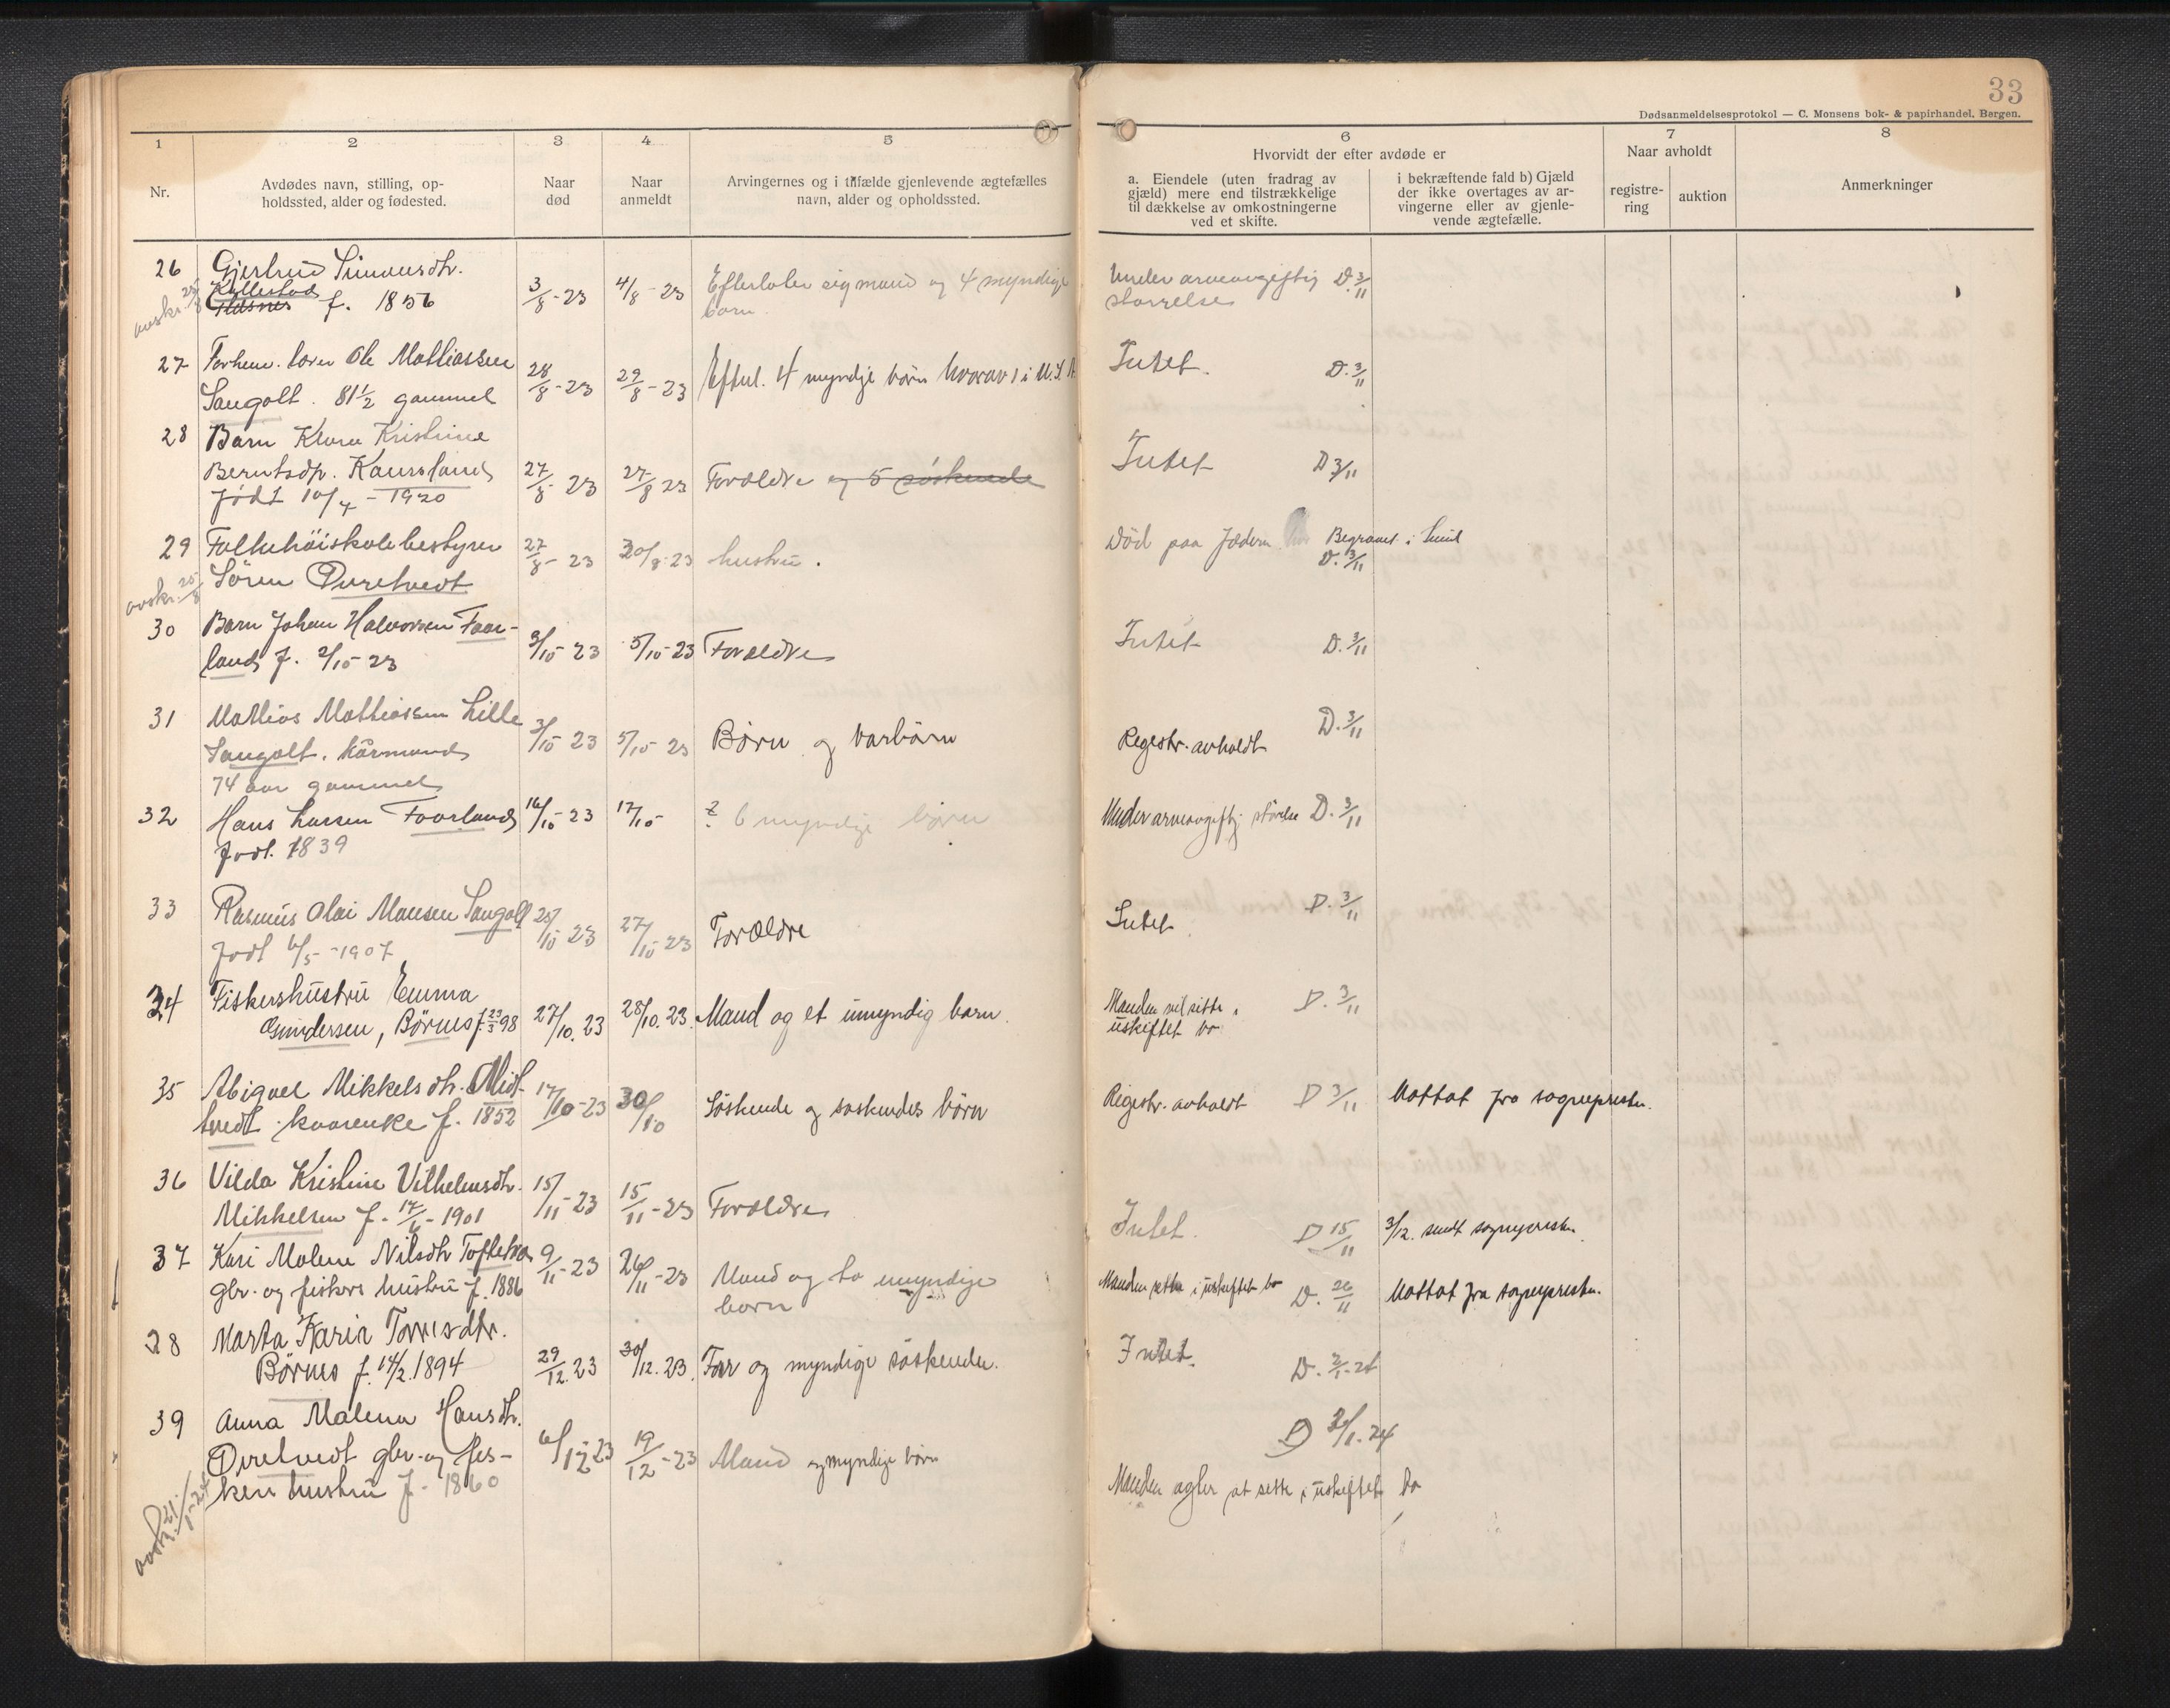 33
Dødsanmeldelsesprotokol — C. Monsens bok- & papirhandel, Bergen.
1
2
3
4
5
6
7
8
Nr.
Avdødes navn, stilling, op-
holdssted, alder og fødested.
Naar
død
Naar
anmeldt
Arvingernes og i tilfælde gjenlevende ægtefælles
navn, alder og opholdssted.
Hvorvidt der efter avdøde er
a. Eiendele (uten fradrag av
gjæld) mere end tilstrækkelige
til dækkelse av omkostningerne
ved et skifte.
i bekræftende fald b) Gjæld
der ikke overtages av ar-
vingerne eller av gjenle-
vende ægtefælle.
Naar avholdt
registre-
ring
auktion
Anmerkninger
26 Gjertrud Simonsdtr.
f. 1856
3/8-23 4/8-23 Efterlater sig mand og 4 myndige
barn.
Under arveavgiftig D. 3/11
størrelse
27 Forhenv. lærer Ole Mathiassen
Saugolt. 81 1/2 gammel
28/8-23 29/8-23 Efterl. 4 myndje børn hvorav 1 i U.S.A.
Intet. D. 3/11
28 Barn Klara Kristine
Berntsdtr. Kaursland
født 10/4-1920
27/8 23 27/8 23 Forældre og 5 søskende
Intet D 3/11
29 Folkehöiskolebestyrer
Sören Övretvedt
avskr. 25/8
27/8-23 30/8-23 hustru.
Död paa Jædern Begravet i
D. 3/11
30 Barn Johan Halvorsen Faar-
land f. 2/10-23
3/10 23 5/10-23 Forældre
Intet D. 3/11
31 Mathias Mathiassen Lille
Saugolt. kårmand
74 aar gammel
3/10 23 5/10 23 Børn og barbørn
Regestr. avholdt D. 3/11
32 Hans Larsen Faarland
født. 1839
16/10 23 17/10 ? 6 myndige børn
Under arveavgiftj størelse D. 3/11
33 Rasmus Olai Monsen Saugolt
født 6/5-1907
25/10 23 27/10 23 Forældre
Intet D. 3/11
34 Fiskershustru Emma
Gundersen, Børnes f. 23/3 98
27/10. 23 28/10. 23. Mand og et umyndig barn.
Manden vil sitte i
uskiftet bo D. 3/11
35 Abigael Mikkelsdtr. Midt-
tvedt. kaarenke f. 1852
17/10-23 30/10 Søskende og søskendes børn
Regestr. avholdt D 3/11 Mottat fra sognepresten.
36 Vilda Kristine Vilhelmsdtr.
Mikkelsen f. 17/6-1901
15/11-23 15/11-23 Forældre
Intet. D 15/11 3/12. sendt sognepresten.
37 Kari Malene Nilsdtr
gbr. og fiskers hustru f. 1886
9/11-23 26/11-23 Mand og to umyndige
børn
Manden sitte i uskiftet bo D. 26/11 Mottat fra sognepresten.
38 Marta Karin Tørresdtr.
Børnes f. 14/2.1894
29/12. 23 30/12. 23. Far og myndige søskende.
Intet. D. 2/1-24
39 Anna Malena Hansdtr.
Övretvedt gbr. og fis-
kers hustru f. 1860
avskr. 21/1-24
6/12 23 19/12-23 Mand og myndige børn
D 21/1-24
Manden agter at sitte i uskiftet bo